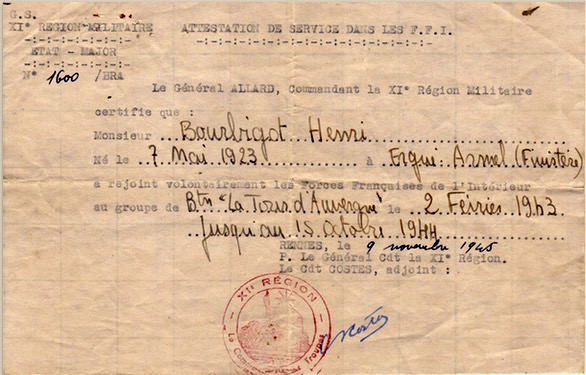 G.S.
XI° REGION MILITAIRE
-:-:-:-:-:-:-:-
ETAT - MAJOR
-:-:-:-:-:-:-
N° 1600 /BRA
ATTESTATION DE SERVICE DANS LES F.F.I.
-:-:-:-:-:-:-:-:-:-:-:-:-:-:-:-:-:-
Le Général ALLARD, Commandant la XI° Région Militaire
certifie que :
Monsieur Bourbigot Henri
Né le 7 Mai 1923 à Ergué Armel (Finistère)
a rejoint volontairement les Forces Françaises de l'Intérieur
au groupe de Btn "La Tour d'Auvergne" le 2 Février 1943
Jusqu'au 15 Octobre 1944
RENNES, le 9 novembre 1945
P. Le Général Cdt la XI° Région.
Le Cdt COSTES, adjoint :
XIe RÉGION
Costes